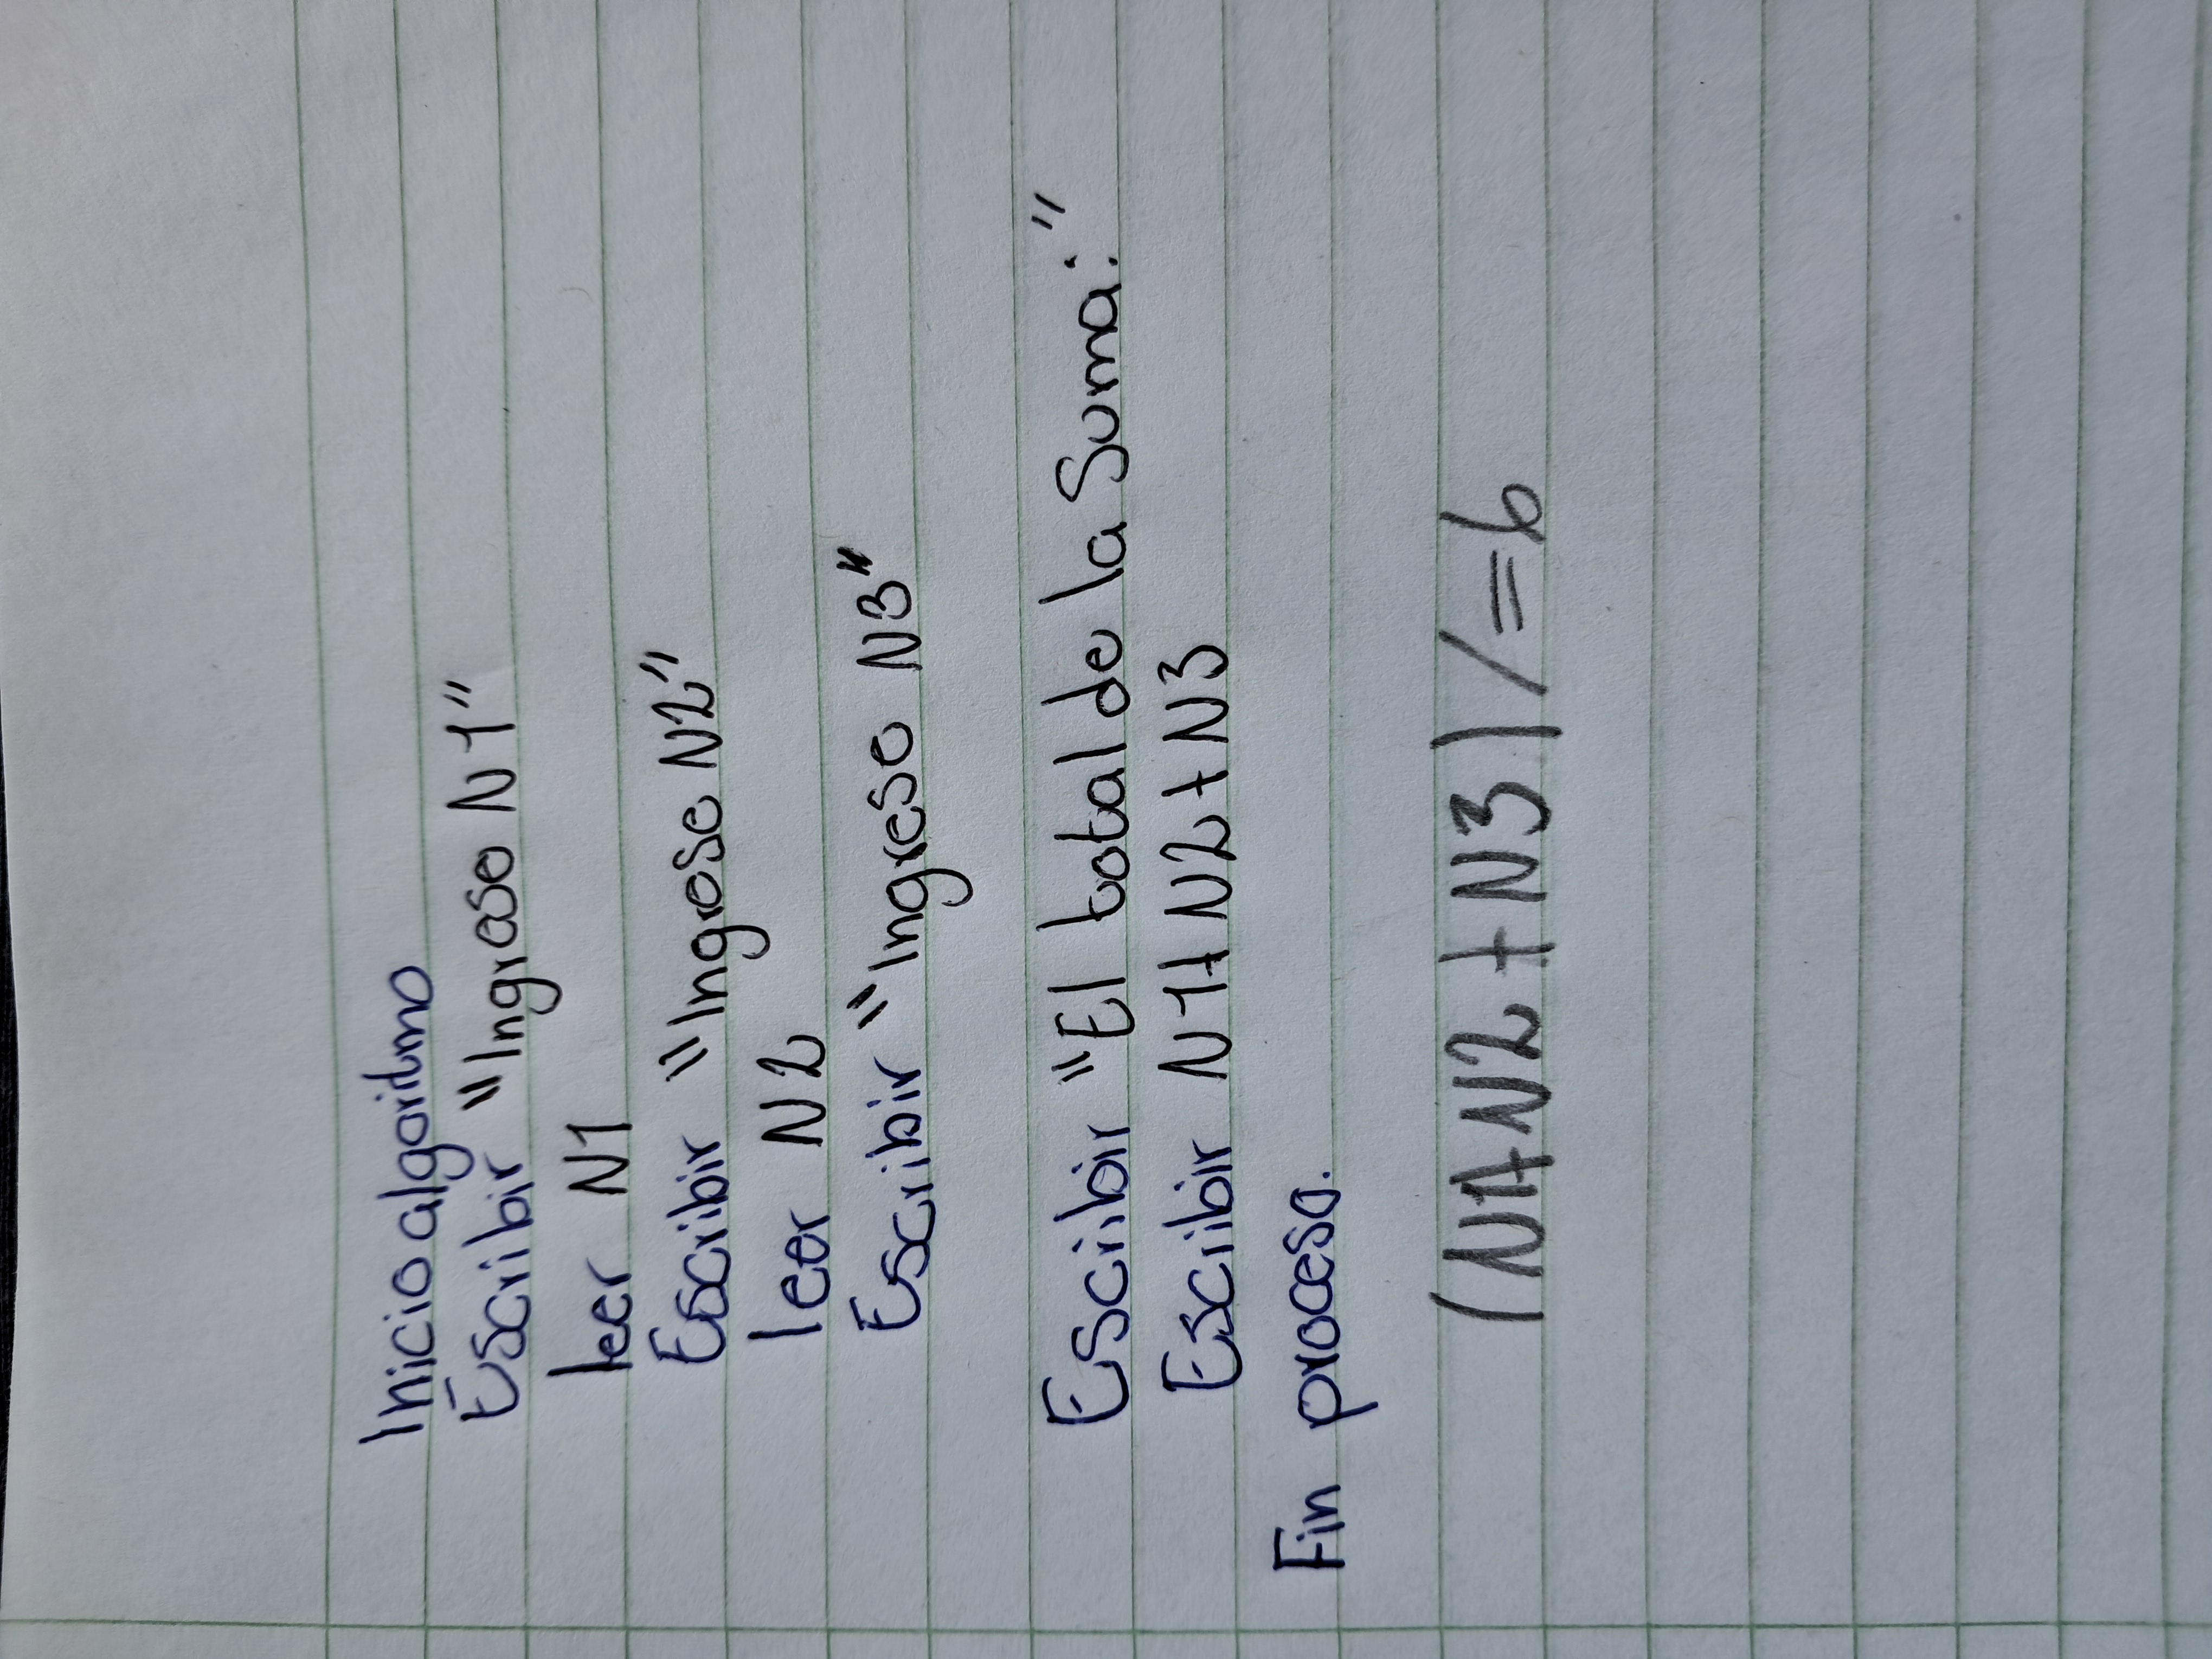 Inicio algoritmo
Escribir "Ingrese N1"
leer N1
Escribir "Ingrese N2"
leer N2
Escribir "Ingrese N3"
Escribir "El total de la Suma:"
Escribir N1+N2+N3
Fin proceso.
(N1+N2+N3)/=6